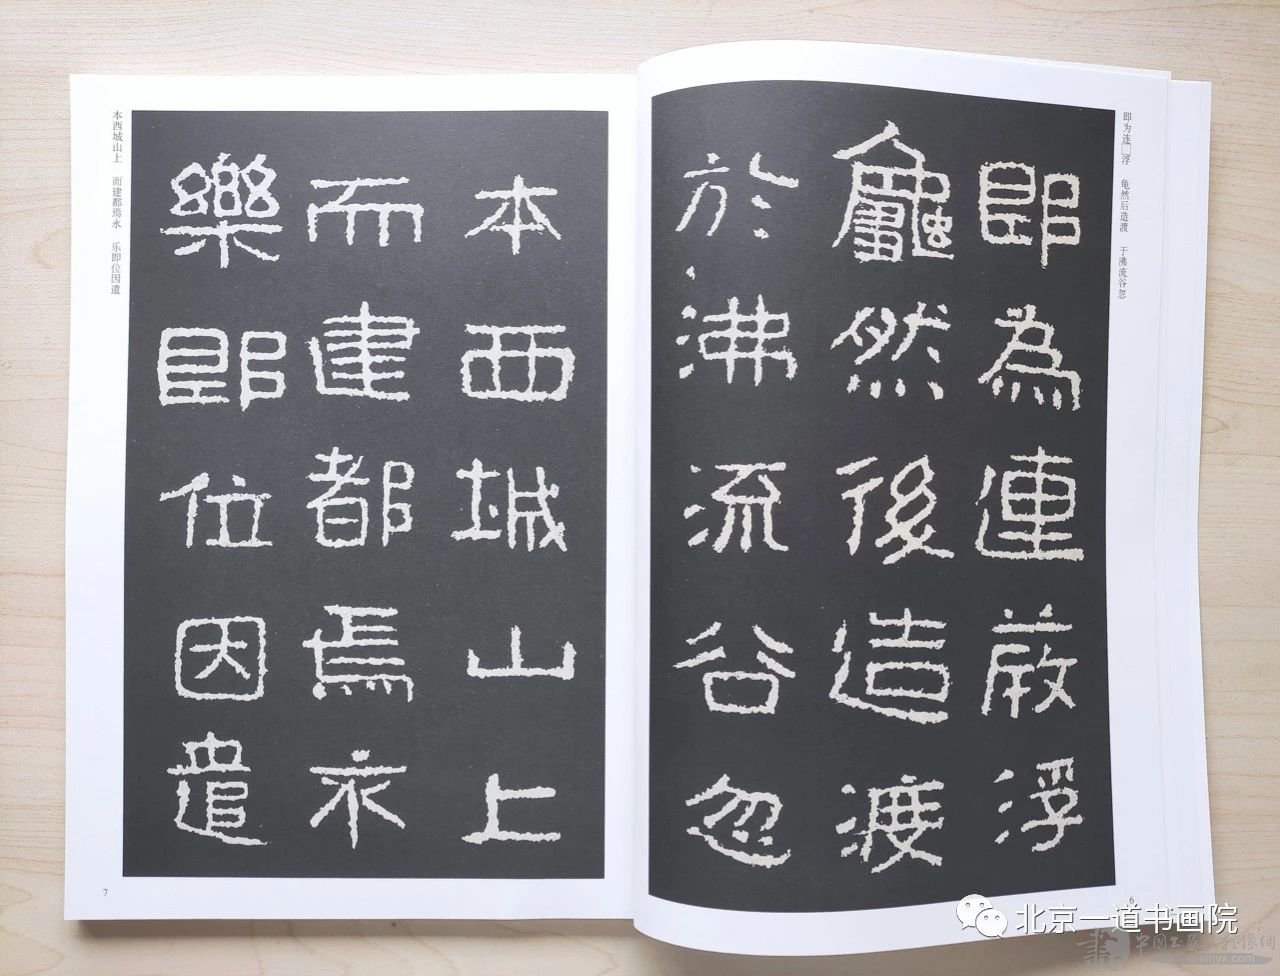 即为连□浮 龟然后造渡 于沸流谷忽
即為連葭浮
龜然後造渡
於沸流谷忽
6
本西城山上 而建都焉永 乐即位因遣
本西城山上
而建都焉永
樂即位因遣
7
北京一道书画院